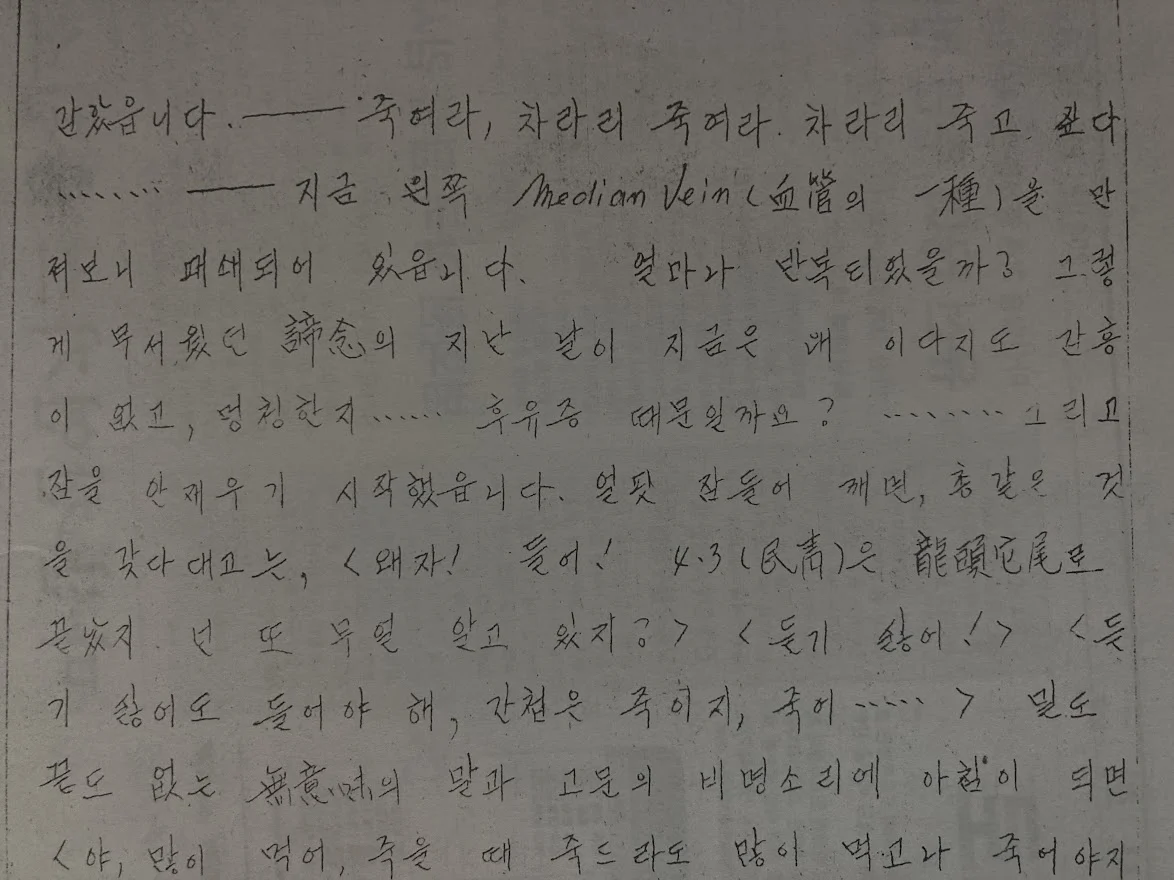 갔읍니다. ── 죽여라, 차라리 죽여라. 차라리 죽고 싶다
……… ── 지금 왼쪽 Median Vein (血管의 一種)을 만
져보니 폐쇄되어 있읍니다. 얼마나 반복되었을까? 그렇
게 무서웠던 諦念의 지난 날이 지금은 왜 이다지도 감흥
이 없고, 멍청한지…… 후유증 때문일까요? ……… 그리고
잠을 안재우기 시작했읍니다. 얼핏 잠들어 깨면, 총같은 것
을 갖다대고는, <왜자! 들어! 4·3 (民靑)은 龍頭蛇尾로
끝났지 넌 또 무얼 알고 있지?> <듣기 싫어!> <듣
기 싫어도 들어야 해, 간첩은 죽이지, 죽어……> 밑도
끝도 없는 無意味의 말과 고문의 비명소리에 아침이 되면
<야, 많이 먹어, 죽을 때 죽드라도 많이 먹고나 죽어야지